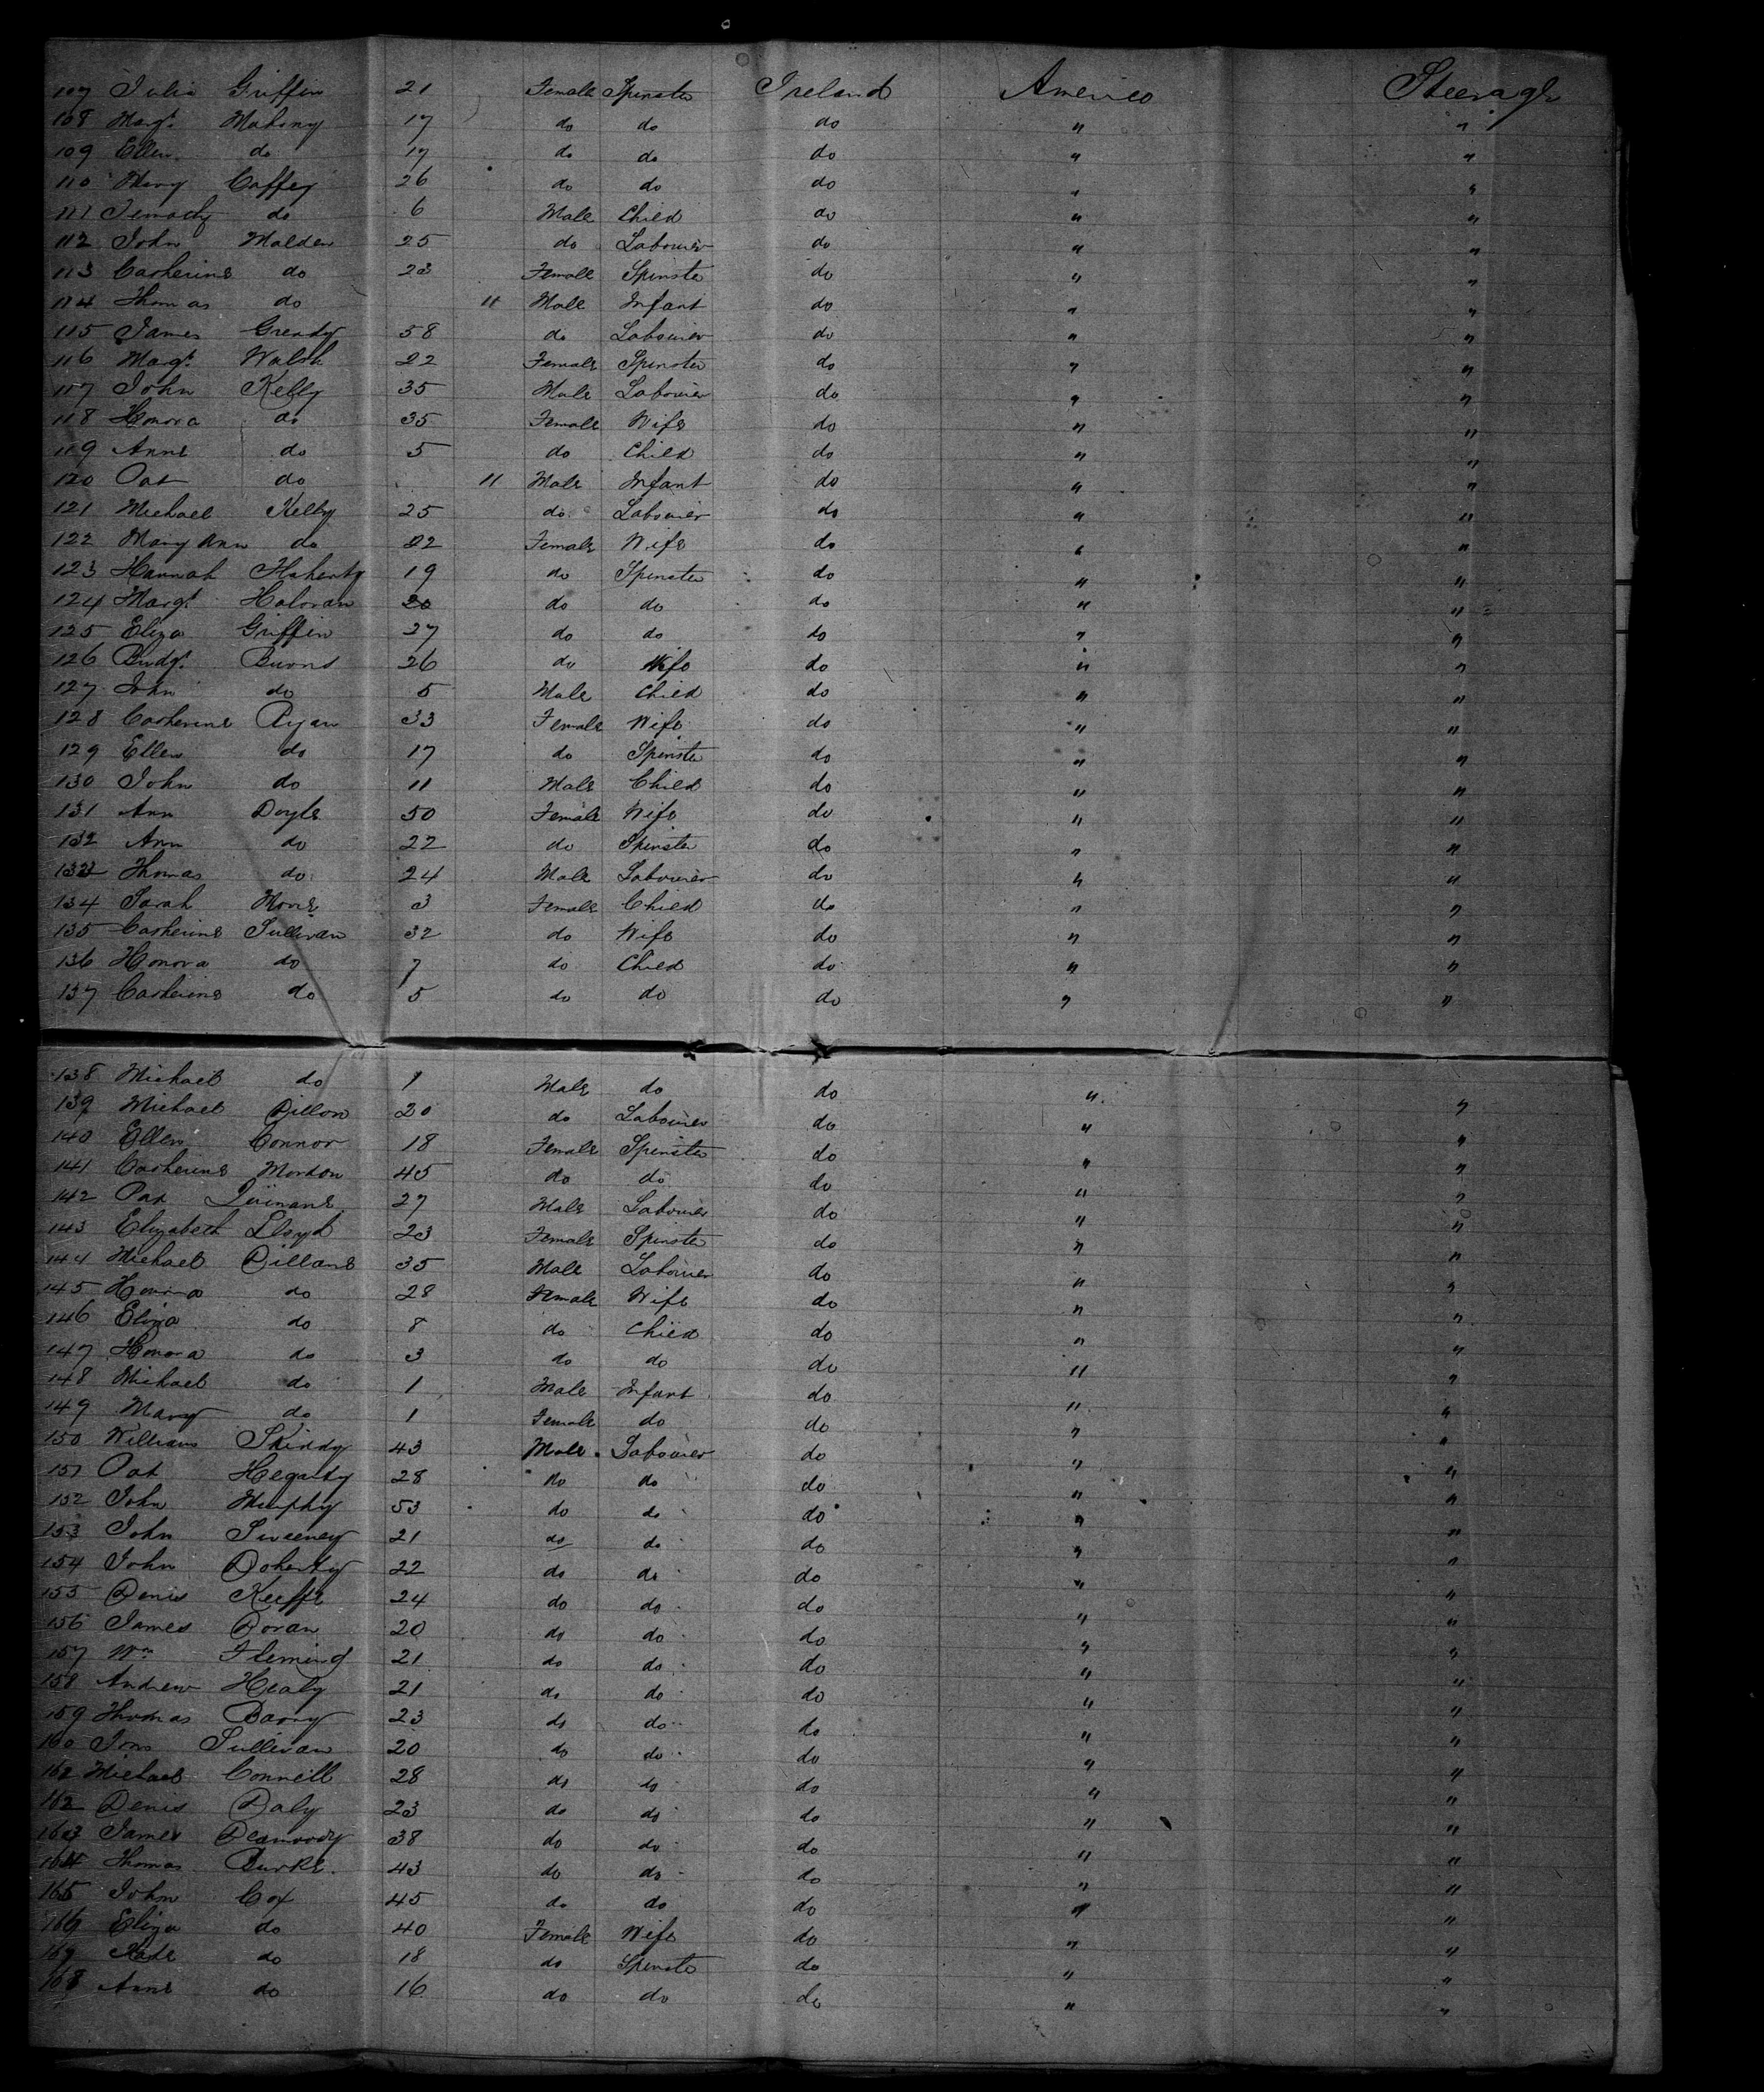 107 Julia Griffin 21 Female Spinster Ireland America Steerage
108 Margt. Mahony 17 do do do " "
109 Ellen do 17 do do do " "
110 Mary Caffey 26 do do do " "
111 do 6 Male Child do " "
112 John Malden 25 do Labourer do " "
113 Catherine do 23 Female Spinster do " "
114 Thomas do 11 Male Infant do " "
115 James Gready 58 do Labourer do " "
116 Margt. Walsh 22 Female Spinster do " "
117 John Kelly 35 Male Labourer do " "
118 Honora do 35 Female Wife do " "
119 Anne do 5 do Child do " "
120 Pat do 11 Male Infant do " "
121 Michael Kelly 25 do Labourer do " "
122 Mary Ann do 22 Female Wife do " "
123 Hannah Flaherty 19 do Spinster do " "
124 Margt. Haloran 20 do do do " "
125 Eliza Griffin 27 do do do " "
126 Bridgt. Burns 26 do Wife do " "
127 John do 5 Male Child do " "
128 Catherine Ryan 33 Female Wife do " "
129 Ellen do 17 do Spinster do " "
130 John do 11 Male Child do " "
131 Ann Doyle 50 Female Wife do " "
132 Ann do 22 do Spinster do " "
133 Thomas do 24 Male Labourer do " "
134 Sarah 3 Female Child do " "
135 Catherine Sullivan 32 do Wife do " "
136 Honora do 7 do Child do " "
137 Catherine do 5 do do do " "
138 Michael do 1 Male do do " "
139 Michael Dillon 20 do Labourer do " "
140 Ellen Connor 18 Female Spinster do " "
141 Catherine Morton 45 do do do " "
142 Pat 27 Male Labourer do " "
143 Elizabeth Lloyd 23 Female Spinster do " "
144 Michael Dillane 35 Male Labourer do " "
145 Honora do 28 Female Wife do " "
146 Eliza do 8 do Child do " "
147 Honora do 3 do do do " "
148 Michael do 1 Male Infant do " "
149 Mary do 1 Female do do " "
150 William Skiddy 43 Male Labourer do " "
151 Pat Hegarty 28 do do do " "
152 John Murphy 53 do do do " "
153 John Sweeney 21 do do do " "
154 John Doherty 22 do do do " "
155 Denis Keeffe 24 do do do " "
156 James Doran 20 do do do " "
157 Wm Fleming 21 do do do " "
158 Andrew Healy 21 do do do " "
159 Thomas Barry 23 do do do " "
160 Sullivan 20 do do do " "
162 Michael Connell 28 do do do " "
162 Denis Daly 23 do do do " "
163 James 38 do do do " "
164 Thomas Burke 43 do do do " "
165 John Cox 45 do do do " "
166 Eliza do 40 Female Wife do " "
167 Kate do 18 do Spinster do " "
168 Anne do 16 do do do " "